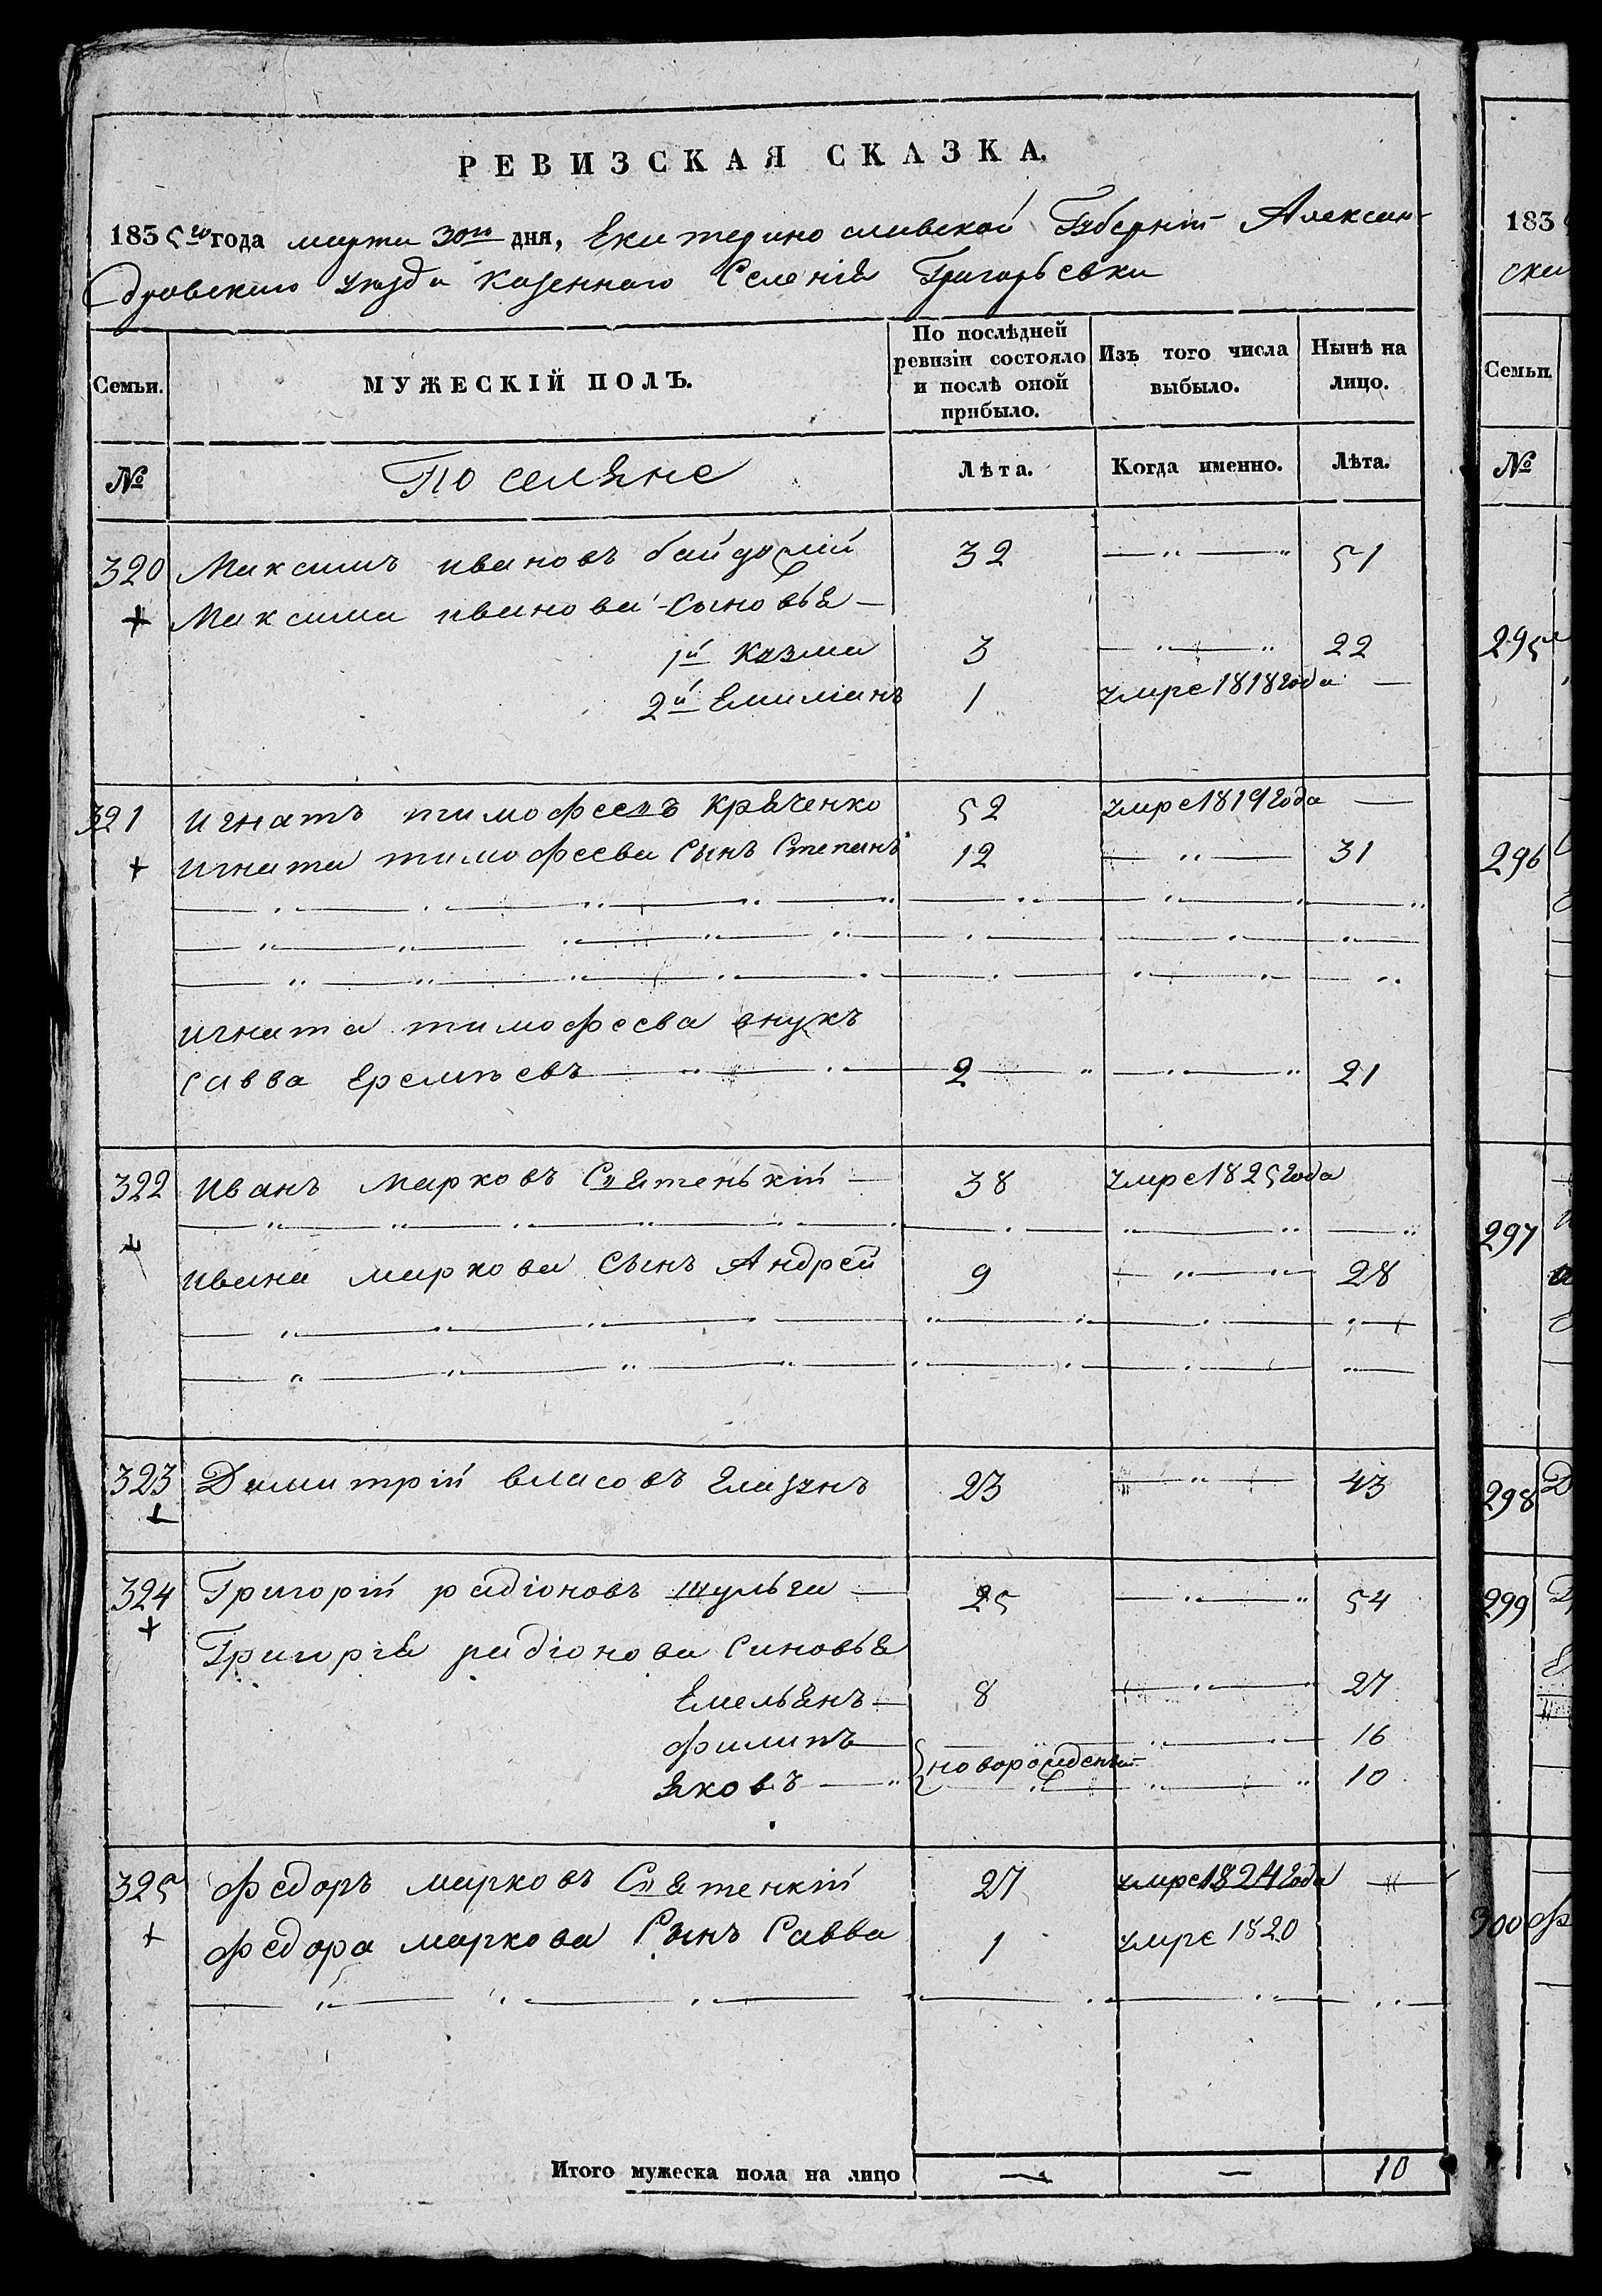 РЕВИЗСКАЯ СКАЗКА.
1835го года марта 30го дня, Екатеринославской Губерніи Алексан-
дровскаго уезда казеннаго Селенія Григорьевки
Семьи.
МУЖЕСКІЙ ПОЛЪ.
По послѣдней ревизіи состояло и послѣ оной прибыло.
Изъ того числа выбыло.
Нынѣ на лицо.
№ Поселяне Лѣта. Когда именно. Лѣта.
320 Максимъ ивановъ 32 51
+ Максима иванова Сыновья
1й Казма 3 22
2й Емилианъ 1 умре 1818 года
321 игнатъ тимофеевъ Кряченко 52 умре 1819 года
+ игната тимофеева Сынъ Степанъ 12 31
игната тимофеева внукъ
Савва Еремѣевъ 2 21
322 иванъ марковъ Святенькій 38 умре 1825 года
ивана маркова Сынъ Андрей 9 28
323 Димитрій власовъ 23 43
324 Григорій радіоновъ шульга 25 54
+ Григорія радіонова Синовья
Емельянъ 8 27
филипъ 16
новорожденыи
Яковъ 10
325 федоръ марковъ Святенкій 27 умре 1824 года
+ федора маркова Сынъ Савва 1 умре 1820
Итого мужеска пола на лицо 10
183
Семьи.
№
295
296
297
298
299
300